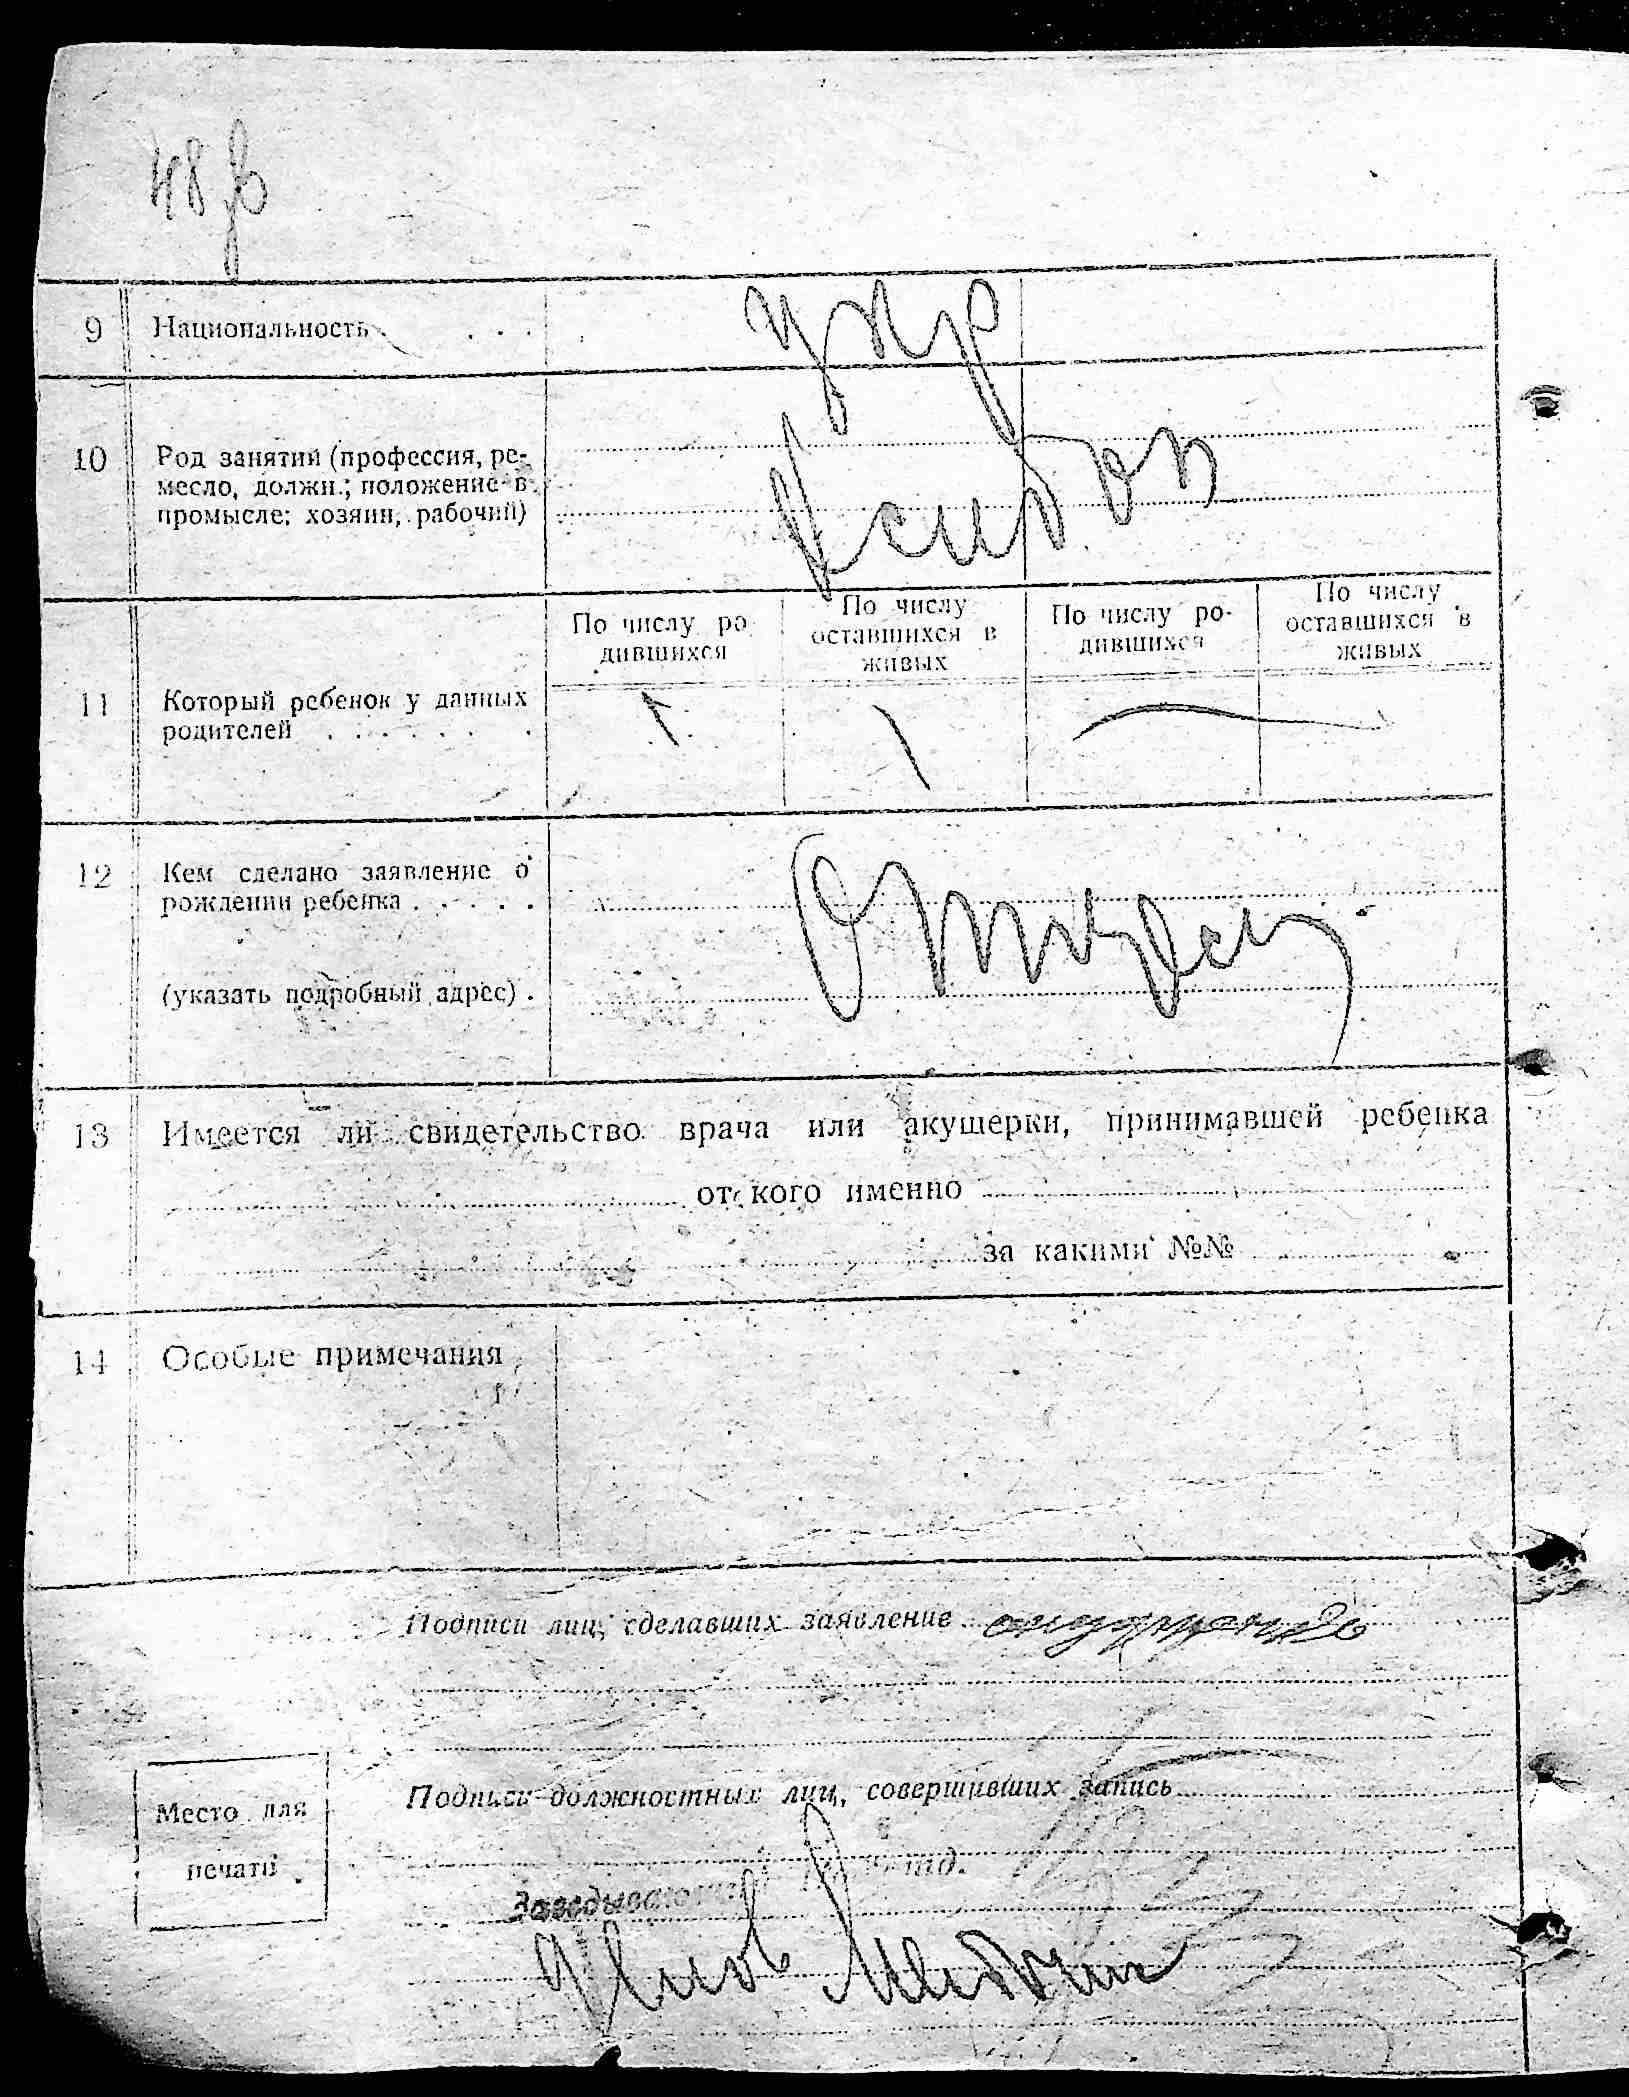 48
9 Национальность . . . . укр
10 Род занятий (профессия, ре-
месло, должн.; положение в
промысле: хозяин, рабочий)
По числу ро-
дившихся
По числу
оставшихся в
живых
По числу ро-
дившихся
По числу
оставшихся в
живых
11 Который ребенок у данных
родителей . . . . . . . 1 1 —
12 Кем сделано заявление о
рождении ребенка . . . . .
(указать подробный адрес) .
13 Имеется ли свидетельство врача или акушерки, принимавшей ребенка
от кого именно
за какими №№
14 Особые примечания
Подписи лиц, сделавших заявление
Подписи должностных лиц, совершивших запись
Место для
печати
Заведывающий